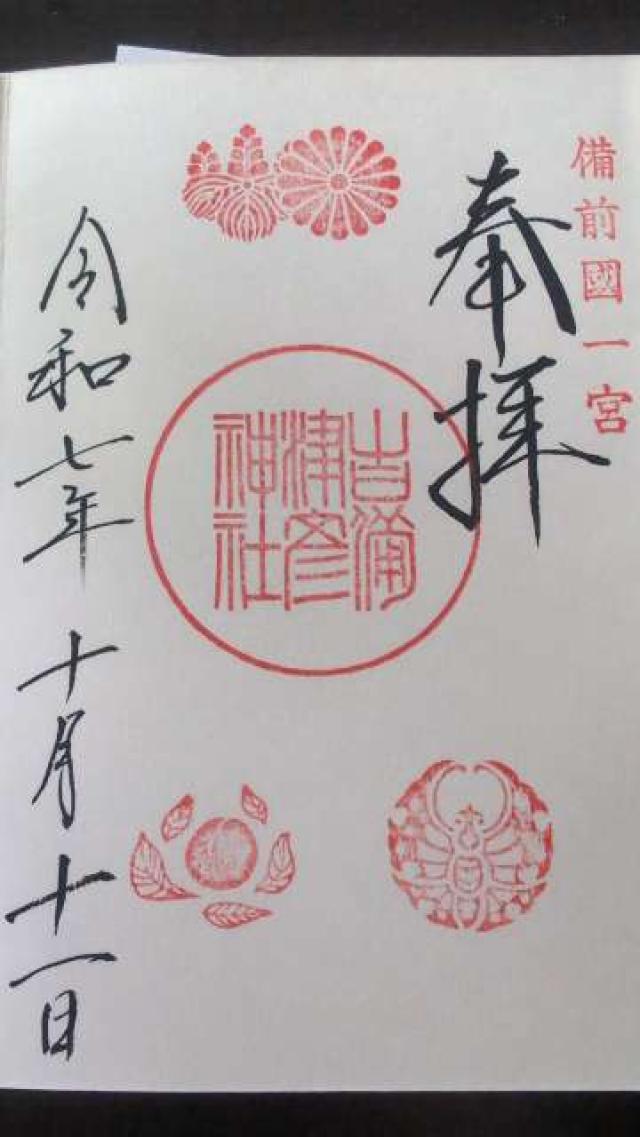 備前國一宮
奉拝
吉備
津彦
神社
令和七年十月十一日